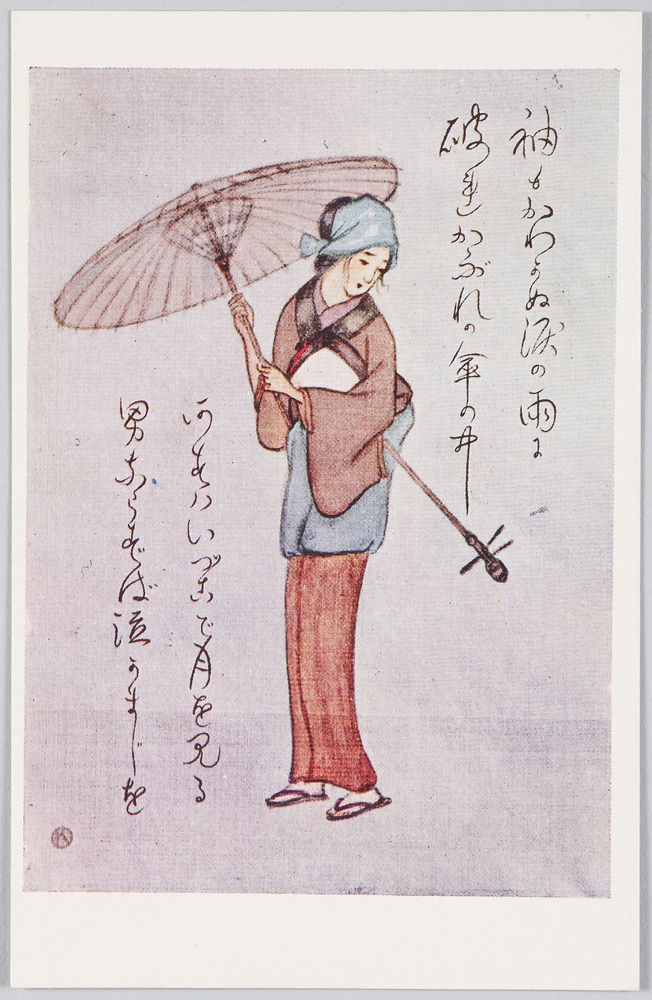 袖もかわかぬ涙の雨に
破れかぶれの傘の中
あすはいづこで月を見る
男ならずば泣かまじを